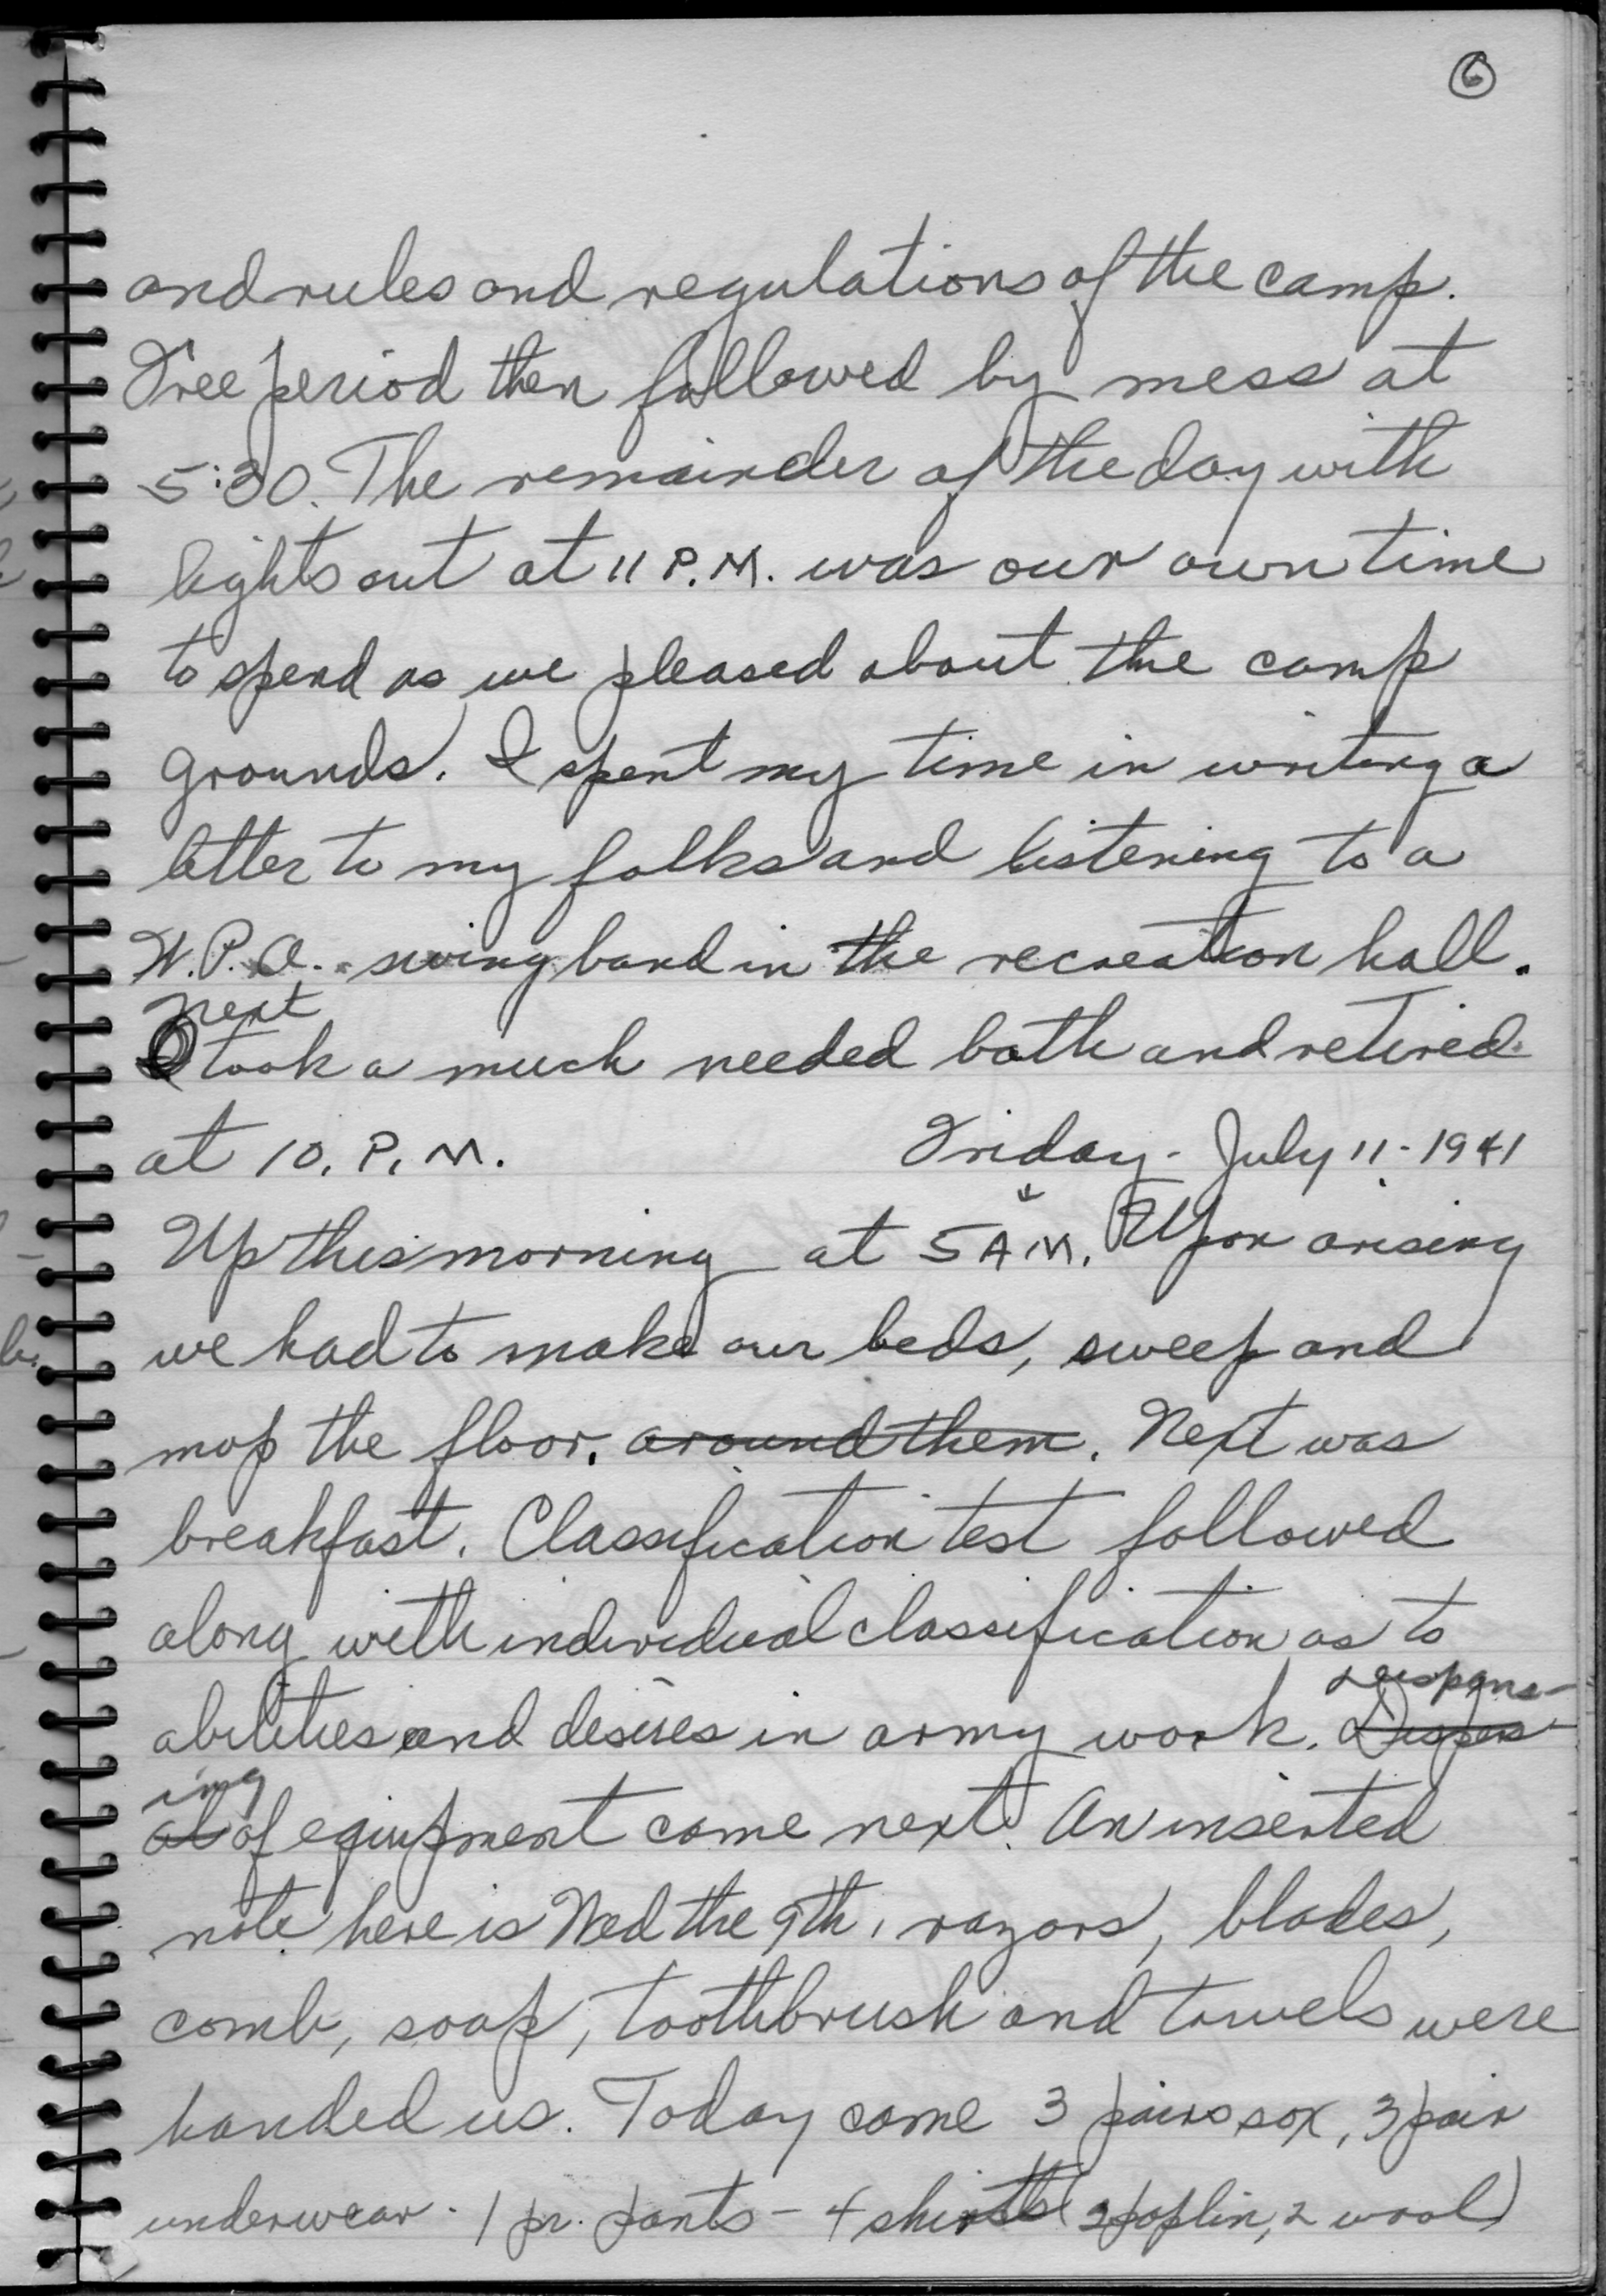 6
and rules and regulations of the camp.
Free period then followed by mess at
5:30. The remainder of the day with
lights out at 11 P.M. was our own time
to spend as we pleased about the camp
grounds. I spent my time in writing a
letter to my folks and listening to a
W.P.A. swing band in the recreation hall.
Next
took a much needed bath and retired
at 10. P.M. Friday - July 11 - 1941
Up this morning at 5 A.M. Upon arising
we had to make our beds, sweep and
mop the floor. around them. Next was
breakfast. Classification test followed
along with individual classification as to
abilities and desires in army work. Dispers-
ing
al of equipment came next. An inserted
note here is Wed the 9th, razors, blades,
comb, soap, toothbrush and towels were
handed us. Today came 3 pairs sox, 3 pair
underwear - 1 pr. pants - 4 shirts (2 poplin, 2 wool)